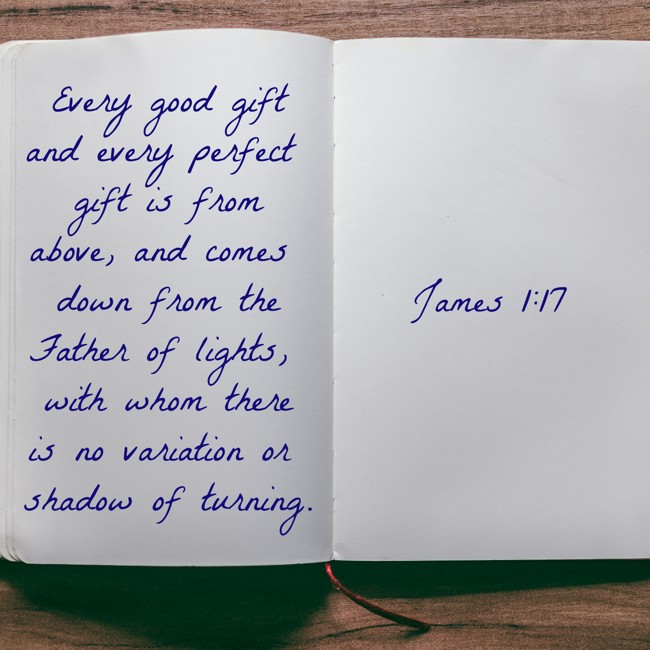 Every good gift
and every perfect
gift is from
above, and comes
down from the
Father of lights,
with whom there
is no variation or
shadow of turning.
James 1:17